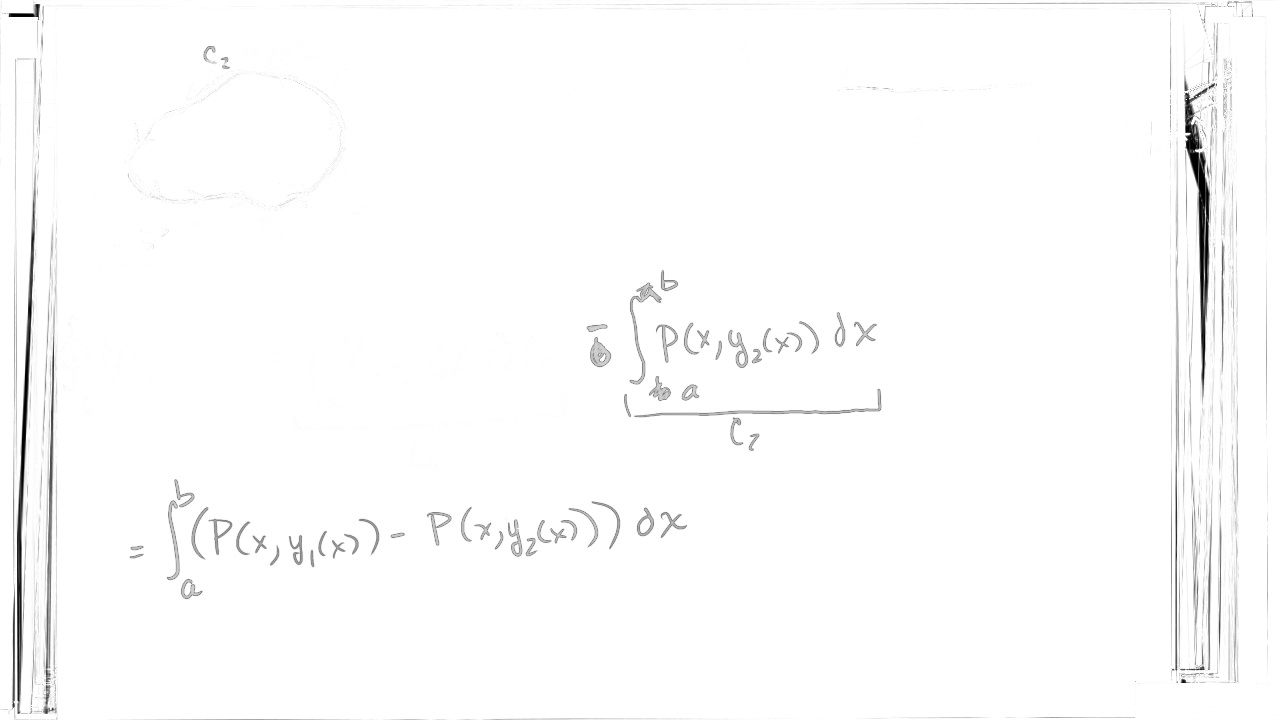 C₂
− ∫ₐᵇ P(x, y₂(x)) dx
C₂
= ∫ₐᵇ (P(x, y₁(x)) − P(x, y₂(x))) dx